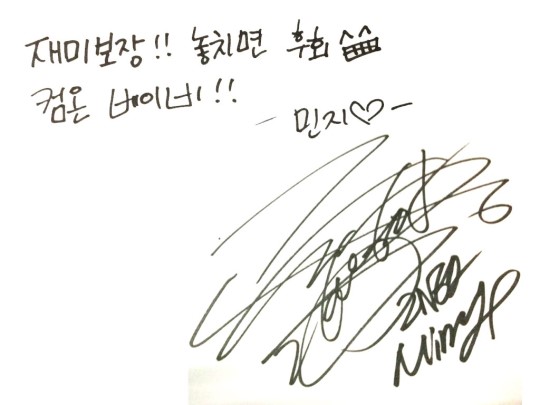 재미보장!! 놓치면 후회
컴온 베이비!!
- 민지♡ -
2NE1
Minzy